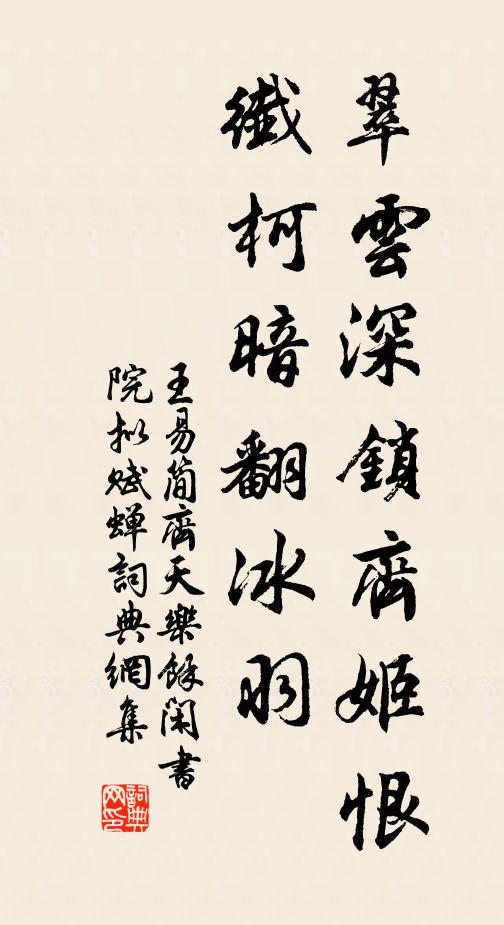 翠雲深鎖齊姬恨
纖柯暗翻冰羽
王易简齊天樂餘閑書
院拟赋蝉詞典網集
詞典网印